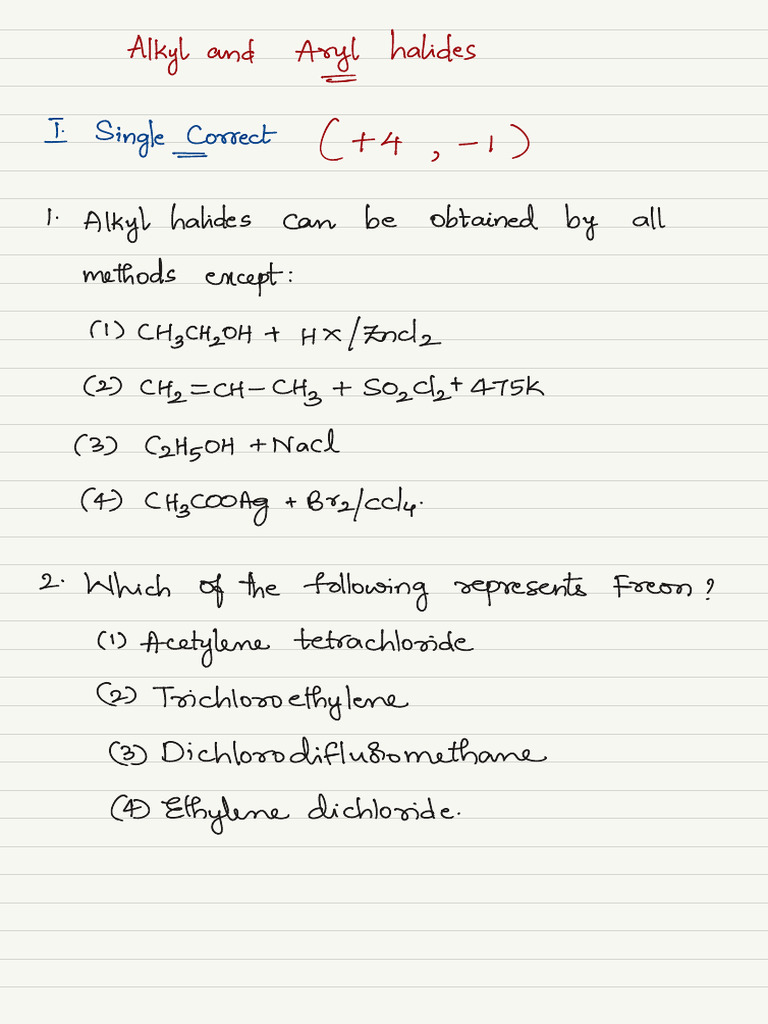 Alkyl and Aryl halides
I. Single Correct (+4, -1)
1. Alkyl halides can be obtained by all
methods except:
(1) CH₃CH₂OH + HX/Zncl₂
(2) CH₂=CH-CH₃ + SO₂Cl₂ + 475K
(3) C₂H₅OH + Nacl
(4) CH₃COOAg + Br₂/ccl₄.
2. Which of the following represents Freon?
(1) Acetylene tetrachloride
(2) Trichloroethylene
(3) Dichlorodifluoromethane
(4) Ethylene dichloride.